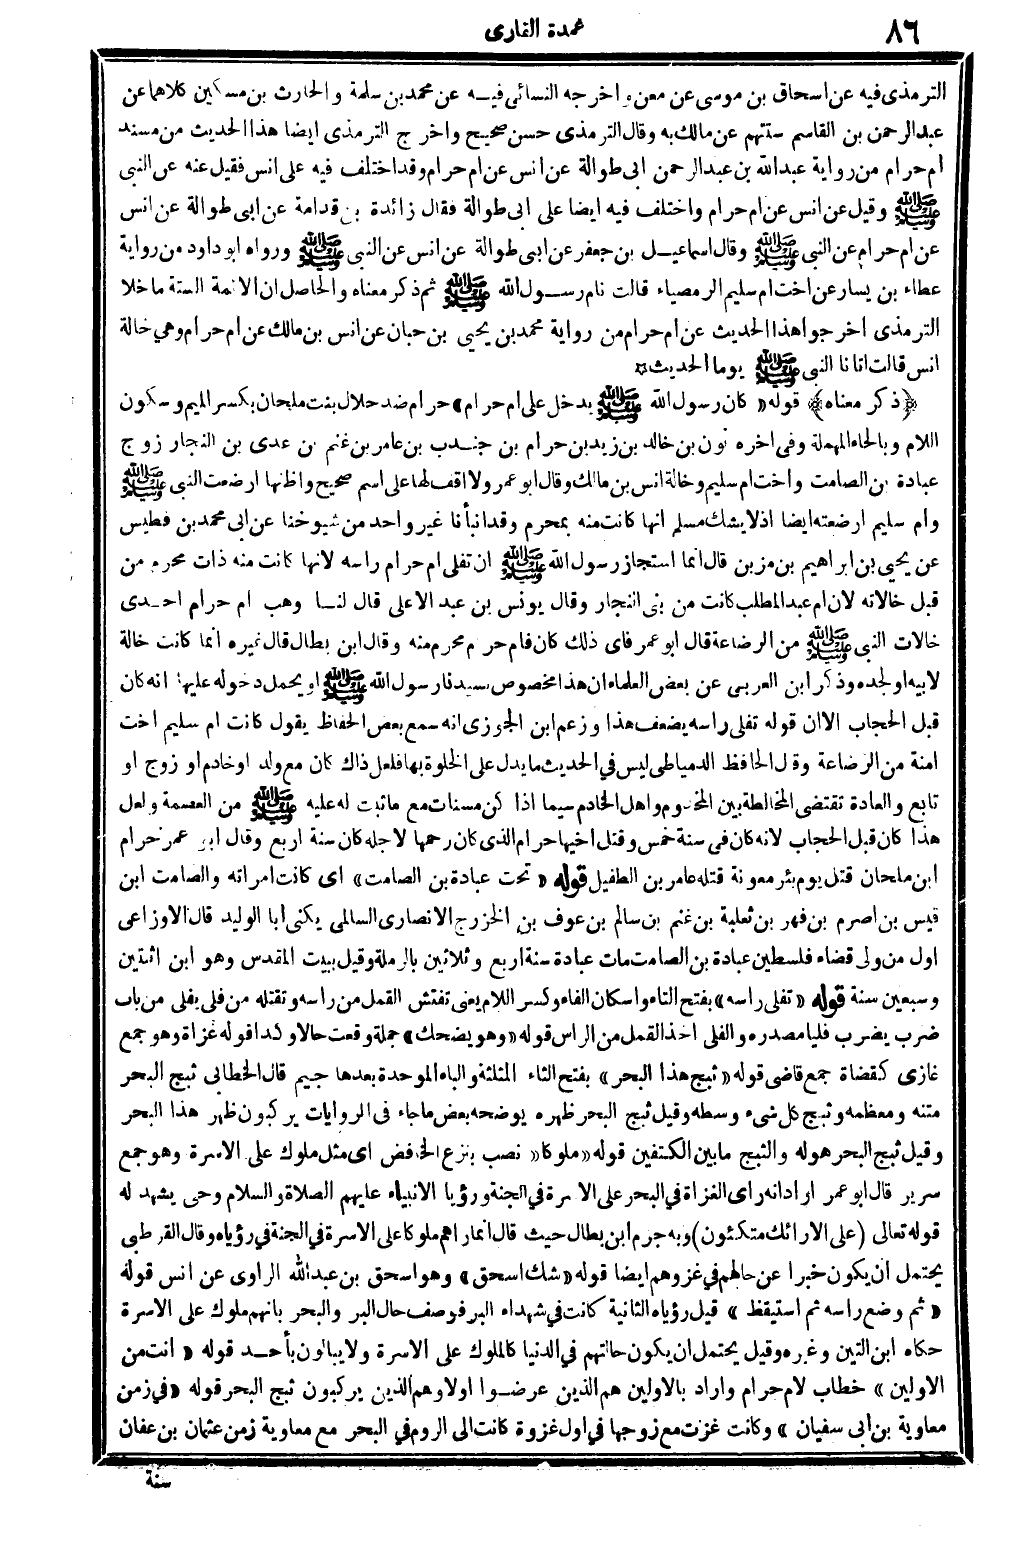 ٨٦
عمدة القارى
الترمذى فيه عن اسحاق بن موسى عن معن واخرجه النسائى فيه عن محمد بن سلمة والحارث بن مسكين كلاهما عن
عبدالرحمن بن القاسم ستتهم عن مالك به وقال الترمذى حسن صحيح واخرج الترمذى ايضا هذا الحديث من مسند
ام حرام من رواية عبدالله بن عبدالرحمن ابى طوالة عن انس عن ام حرام وقد اختلف فيه على انس فقيل عنه عن النبى
ﷺ وقيل عن انس عن ام حرام واختلف فيه ايضا على ابى طوالة فقال زائدة بن قدامة عن ابى طوالة عن انس
عن ام حرام عن النبى ﷺ وقال اسماعيل بن جعفر عن ابى طوالة عن انس عن النبى ﷺ ورواه ابو داود من رواية
عطاء بن يسار عن اخت ام سليم الرمصياء قالت نام رسول الله ﷺ ثم ذكر معناه والحاصل ان الائمة الستة ما خلا
الترمذى اخرجوا هذا الحديث عن ام حرام من رواية محمد بن يحيى بن حبان عن انس بن مالك عن ام حرام وهى خالة
انس قالت اتانا النبى ﷺ يوما الحديث ¤
﴿ذكر معناه﴾ قوله «كان رسول الله ﷺ يدخل على ام حرام» حرام ضد حلال بنت ملحان بكسر الميم وسكون
اللام وبالحاء المهملة وفى اخره نون بن خالد بن زيد بن حرام بن جندب بن عامر بن غنم بن عدى بن النجار زوج
عبادة بن الصامت واخت ام سليم وخالة انس بن مالك وقال ابو عمر ولا اقف لها على اسم صحيح واظنها ارضعت النبى ﷺ
وام سليم ارضعته ايضا اذ لا يشك مسلم انها كانت منه بمحرم وقد انبأنا غير واحد من شيوخنا عن ابى محمد بن فطيس
عن يحيى بن ابراهيم بن مزين قال انما استجاز رسول الله ﷺ ان تفلى ام حرام راسه لانها كانت منه ذات محرم من
قبل خالاته لان ام عبدالمطلب كانت من بنى النجار وقال يونس بن عبد الاعلى قال لنا وهب ام حرام احدى
خالات النبى ﷺ من الرضاعة قال ابو عمر فاى ذلك كان فام حرام محرم منه وقال ابن بطال قال غيره انما كانت خالة
لابيه او لجده وذكر ابن العربى عن بعض العلماء ان هذا مخصوص بسيدنا رسول الله ﷺ او يحمل دخوله عليها انه كان
قبل الحجاب الا ان قوله تفلى راسه يضعف هذا وزعم ابن الجوزى انه سمع بعض الحفاظ يقول كانت ام سليم اخت
امنة من الرضاعة وقال الحافظ الدمياطى ليس فى الحديث ما يدل على الخلوة بها فلعل ذاك كان مع ولد او خادم او زوج او
تابع والعادة تقتضى المخالطة بين المخدوم واهل الخادم سيما اذا كن مسنات مع ما ثبت له عليه ﷺ من العصمة ولعل
هذا كان قبل الحجاب لانه كان فى سنة خمس وقتل اخيها حرام الذى كان رحمها لاجله كان سنة اربع وقال ابو عمر حرام
ابن ملحان قتل يوم بئر معونة قتله عامر بن الطفيل قوله «تحت عبادة بن الصامت» اى كانت امراته والصامت ابن
قيس بن اصرم بن فهر بن ثعلبة بن غنم بن سالم بن عوف بن الخزرج الانصارى السالمى يكنى ابا الوليد قال الاوزاعى
اول من ولى قضاء فلسطين عبادة بن الصامت مات عبادة سنة اربع وثلاثين بالرملة وقيل ببيت المقدس وهو ابن اثنتين
وسبعين سنة قوله «تفلى راسه» بفتح التاء واسكان الفاء وكسر اللام يعنى تفتش القمل من راسه وتقتله من فلى يفلى من باب
ضرب يضرب فليا مصدره والفلى اخذ القمل من الراس قوله «وهو يضحك» جملة وقعت حالا وكذا قوله غزاة وهو جمع
غازى كقضاة جمع قاضى قوله «ثبج هذا البحر» بفتح الثاء المثلثة والباء الموحدة بعدها جيم قال الخطابى ثبج البحر
متنه ومعظمه وثبج كل شىء وسطه وقيل ثبج البحر ظهره يوضحه بعض ما جاء فى الروايات يركبون ظهر هذا البحر
وقيل ثبج البحر هوله والثبج ما بين الكتفين قوله «ملوكا» نصب بنزع الخافض اى مثل ملوك على الاسرة وهو جمع
سرير قال ابو عمر اراد انه راى الغزاة فى البحر على الاسرة فى الجنة ورؤيا الانبياء عليهم الصلاة والسلام وحى يشهد له
قوله تعالى (على الارائك متكئون) وبه جزم ابن بطال حيث قال انما راهم ملوكا على الاسرة فى الجنة فى رؤياه وقال القرطبى
يحتمل ان يكون خبرا عن حالهم فى غزوهم ايضا قوله «شك اسحق» وهو اسحق بن عبدالله الراوى عن انس قوله
«ثم وضع راسه ثم استيقظ» قيل رؤياه الثانية كانت فى شهداء البر فوصف حال البر والبحر بانهم ملوك على الاسرة
حكاه ابن التين وغيره وقيل يحتمل ان يكون حالتهم فى الدنيا كالملوك على الاسرة ولا يبالون بأحد قوله «انت من
الاولين» خطاب لام حرام واراد بالاولين هم الذين عرضوا اولا وهم الذين يركبون ثبج البحر قوله «فى زمن
معاوية بن ابى سفيان» وكانت غزت مع زوجها فى اول غزوة كانت الى الروم فى البحر مع معاوية زمن عثمان بن عفان
سنة